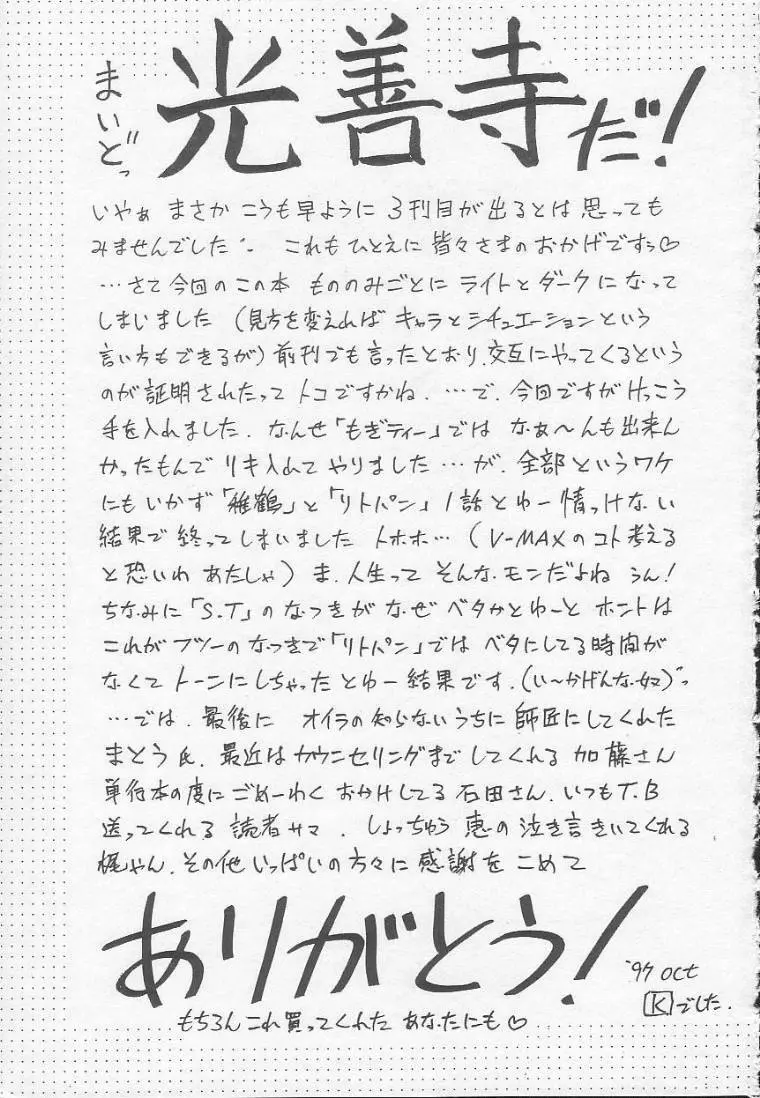 まいどっ
光善寺だ!
いやぁ まさか こうも早ように 3刊目が出るとは 思っても
みませんでした·· これもひとえに 皆々さまのおかげですぅ♡
…さて今回のこの本 もののみごとに ライトとダークになって
しまいました (見方を変えれば キャラとシチュエーションという
言い方もできるが) 前刊でも言ったとおり、交互にやってくるという
のが証明されたって トコですかね. …で. 今回ですがけっこう
手を入れました. なんせ「もぎティー」では なぁ〜んも出来ん
かったもんで リキ入れて やりました…が. 全部というワケ
にもいかず「雅鶴」と「リトパン」1話とゆー情っけない
結果で 終ってしまいました トホホ…(V-MAXのコト考える
と恐いわ あたしゃ) ま、人生って そんなモンだよね うん!
ちなみに「S.T」のなつきが なぜ ベタかとゆーと ホントは
これが フツーのなつきで「リトパン」では ベタにしてる時間が
なくて トーンにしちゃった とゆー結果です.(い〜かげんな奴)゛っ
…では. 最後に オイラの知らないうちに 師匠にしてくれた
まとう氏. 最近は カウンセリングまで してくれる 加藤さん
単行本の度に ごめーわく おかけしてる 石田さん. いつもT.B
送ってくれる 読者サマ. しょっちゅう 恵の泣き言きいてくれる
梶やん. その他 いっぱいの方々に 感謝を こめて
ありがとう!
'97 oct
Kでした.
もちろん これ買ってくれた あなたにも♡